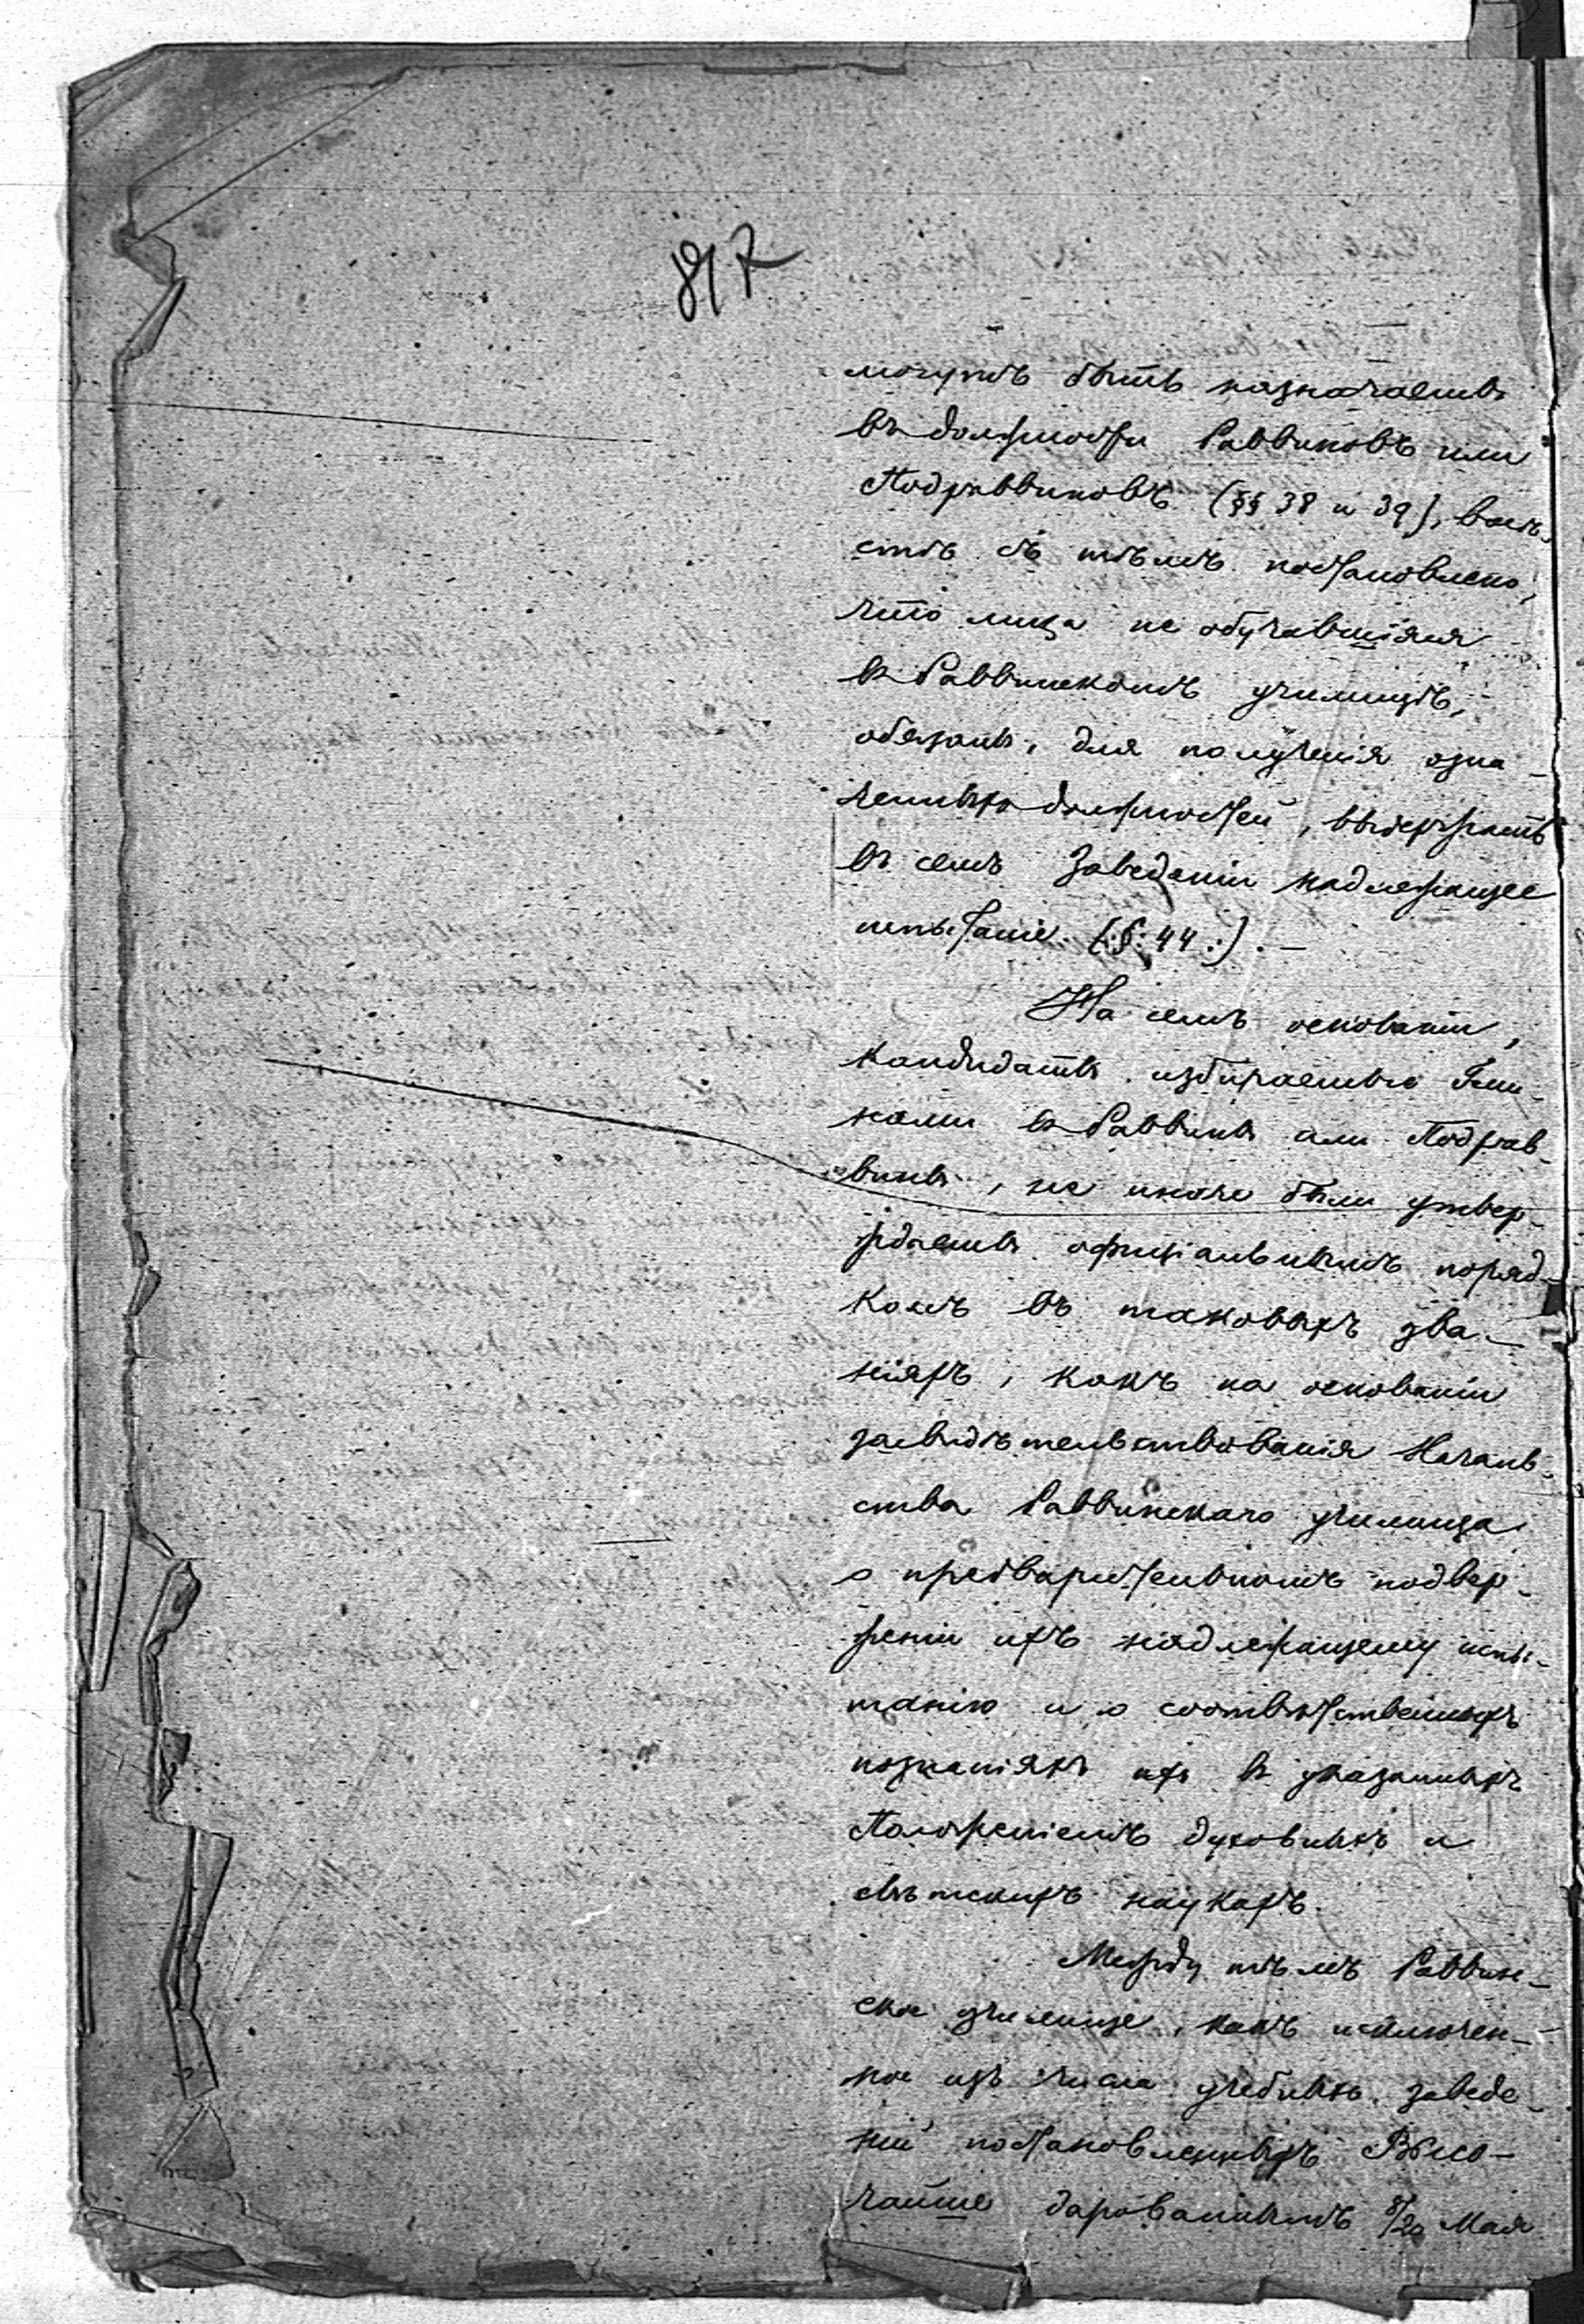 817
могутъ быть назначаемы
въ должности Раввиновъ или
Подраввиновъ (§§ 38 и 39), вмѣ-
стѣ съ тѣмъ постановлено,
что лица не обучавшіяся
въ Раввинскомъ училищѣ,
обязаны, для полученія озна-
ченныхъ должностей, выдержать
въ семъ Заведеніи надлежащее
испытаніе (:§ 44:). —
На семъ основаніи,
кандидаты избираемые Гми-
нами въ Раввины или Подрав-
вины, не иначе были утвер-
ждаемы офиціальнымъ поряд-
комъ въ таковыхъ зва-
ніяхъ, какъ на основаніи
засвидѣтельствованія Началь-
ства Раввинскаго училища
о предварительномъ подвер-
женіи ихъ надлежащему испы-
танію и о соотвѣтственныхъ
познаніяхъ ихъ въ указанныхъ
Положеніемъ духовныхъ и
свѣтскихъ наукахъ.
Между тѣмъ Раввин-
ское училище, какъ исключен-
ное изъ числа учебныхъ заведе-
ній постановленныхъ Высо-
чайше дарованнымъ 8/20 Мая